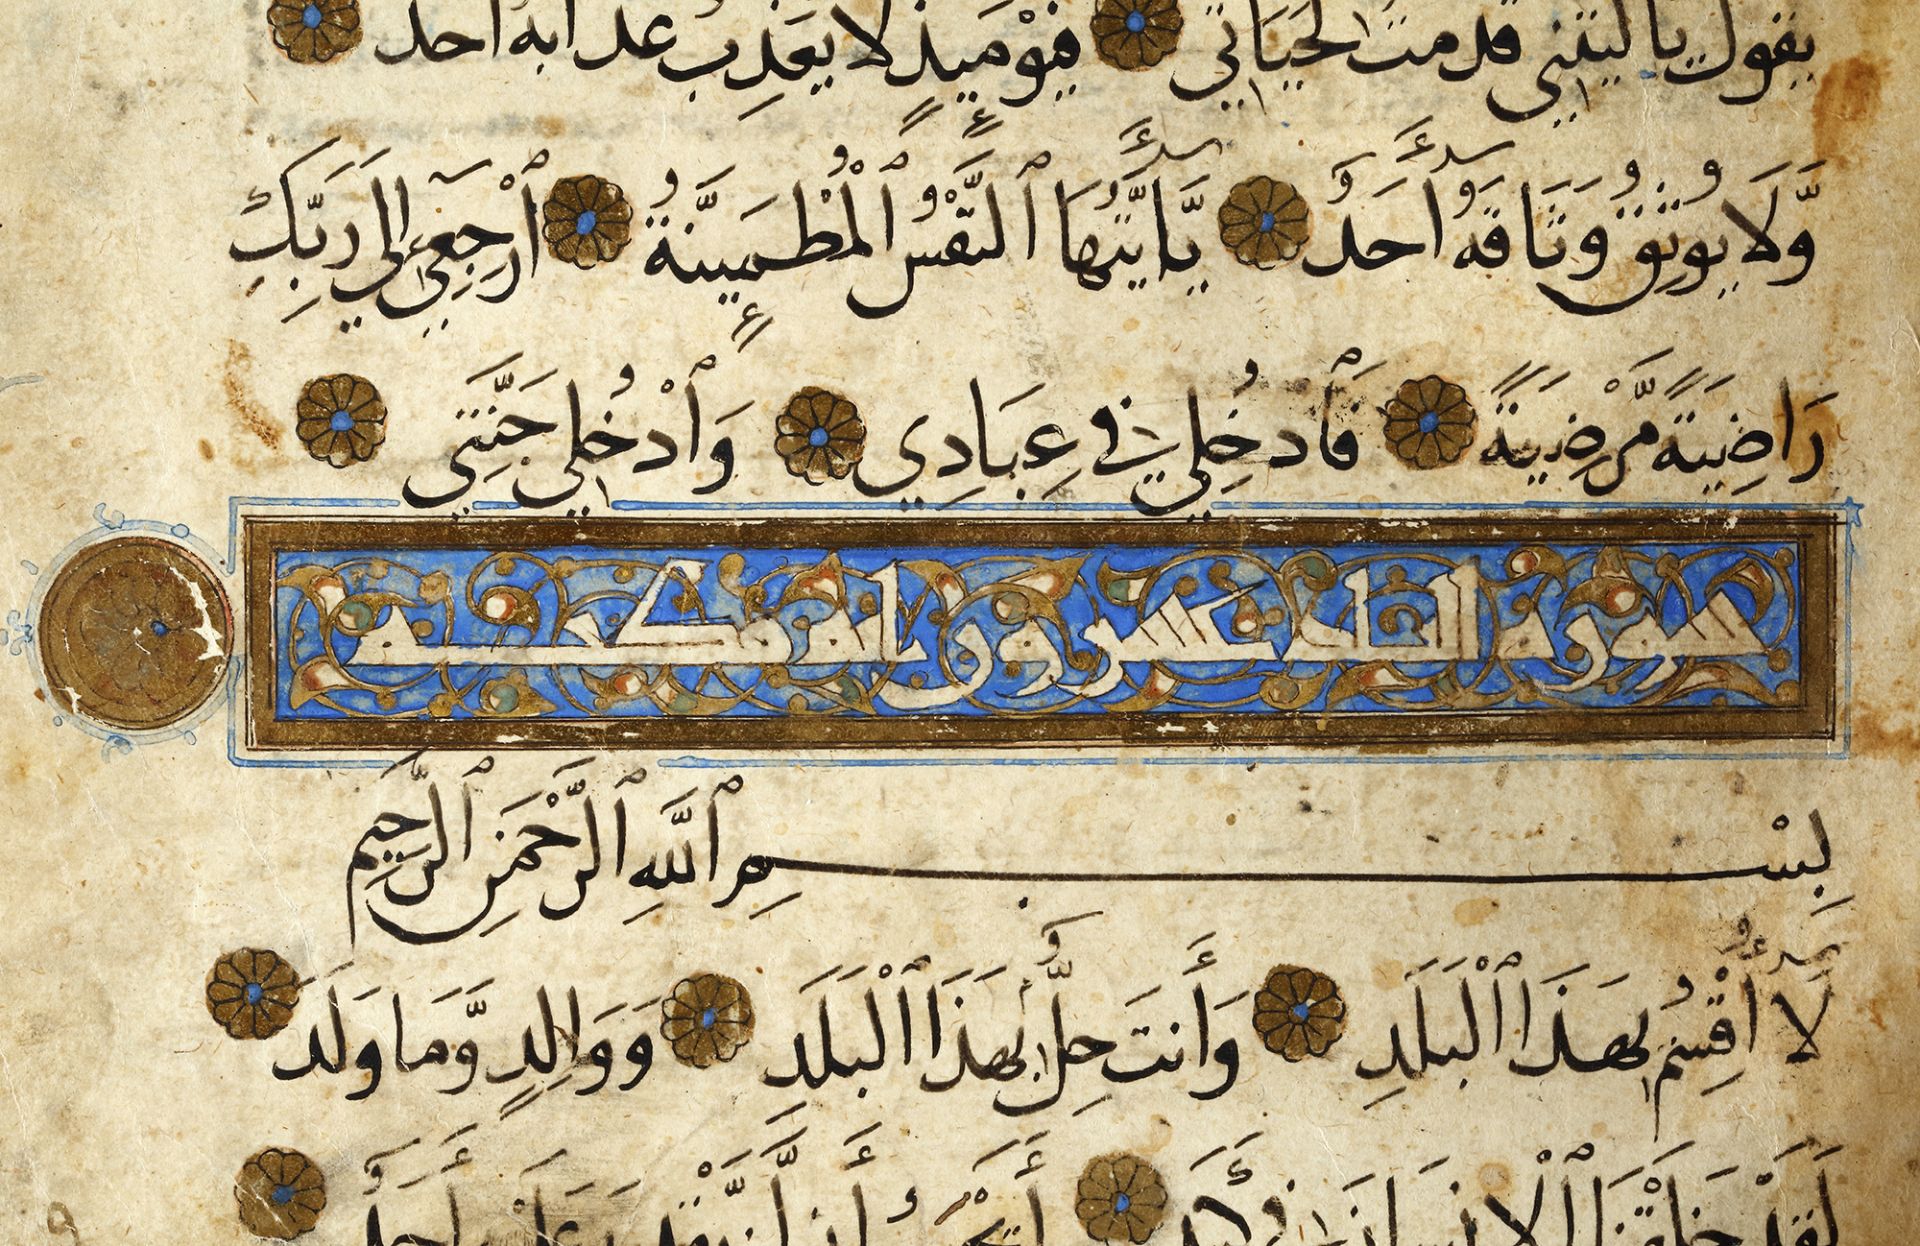 يقول ياليتني قدمت لحياتي فيوميذ لا يعذب عذابه احد
وَّلَا يُوثِقُ وَثَاقَهُ أَحَدٌ يَأَيَّتُهَا ٱلنَّفْسُ ٱلْمُطْمَئِنَّةُ ٱرْجِعِي إِلَى رَبِّكِ
رَاضِيَةً مَّرْضِيَّةً فَٱدْخُلِي فِي عِبَادِي وَٱدْخُلِي جَنَّتِي
سورة البلد عشرون اية مكية
بِسْمِ ٱللَّهِ ٱلرَّحْمَنِ ٱلرَّحِيمِ
لَا أُقْسِمُ بِهَذَا ٱلْبَلَدِ وَأَنتَ حِلٌّ بِهَذَا ٱلْبَلَدِ وَوَالِدٍ وَّمَا وَلَدَ
لَقَدْ خَلَقْنَا ٱلْإِنسَانَ فِي كَبَدٍ أَيَحْسَبُ أَن لَّن يَقْدِرَ عَلَيْهِ أَحَدٌ